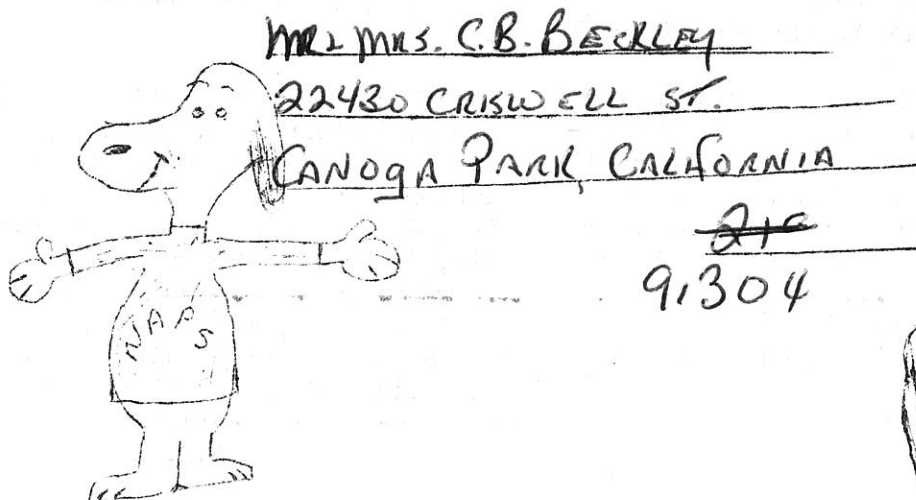 MR & MRS. C.B. BECKLEY
22430 CRISWELL ST.
CANOGA PARK, CALIFORNIA
91304
NAPS